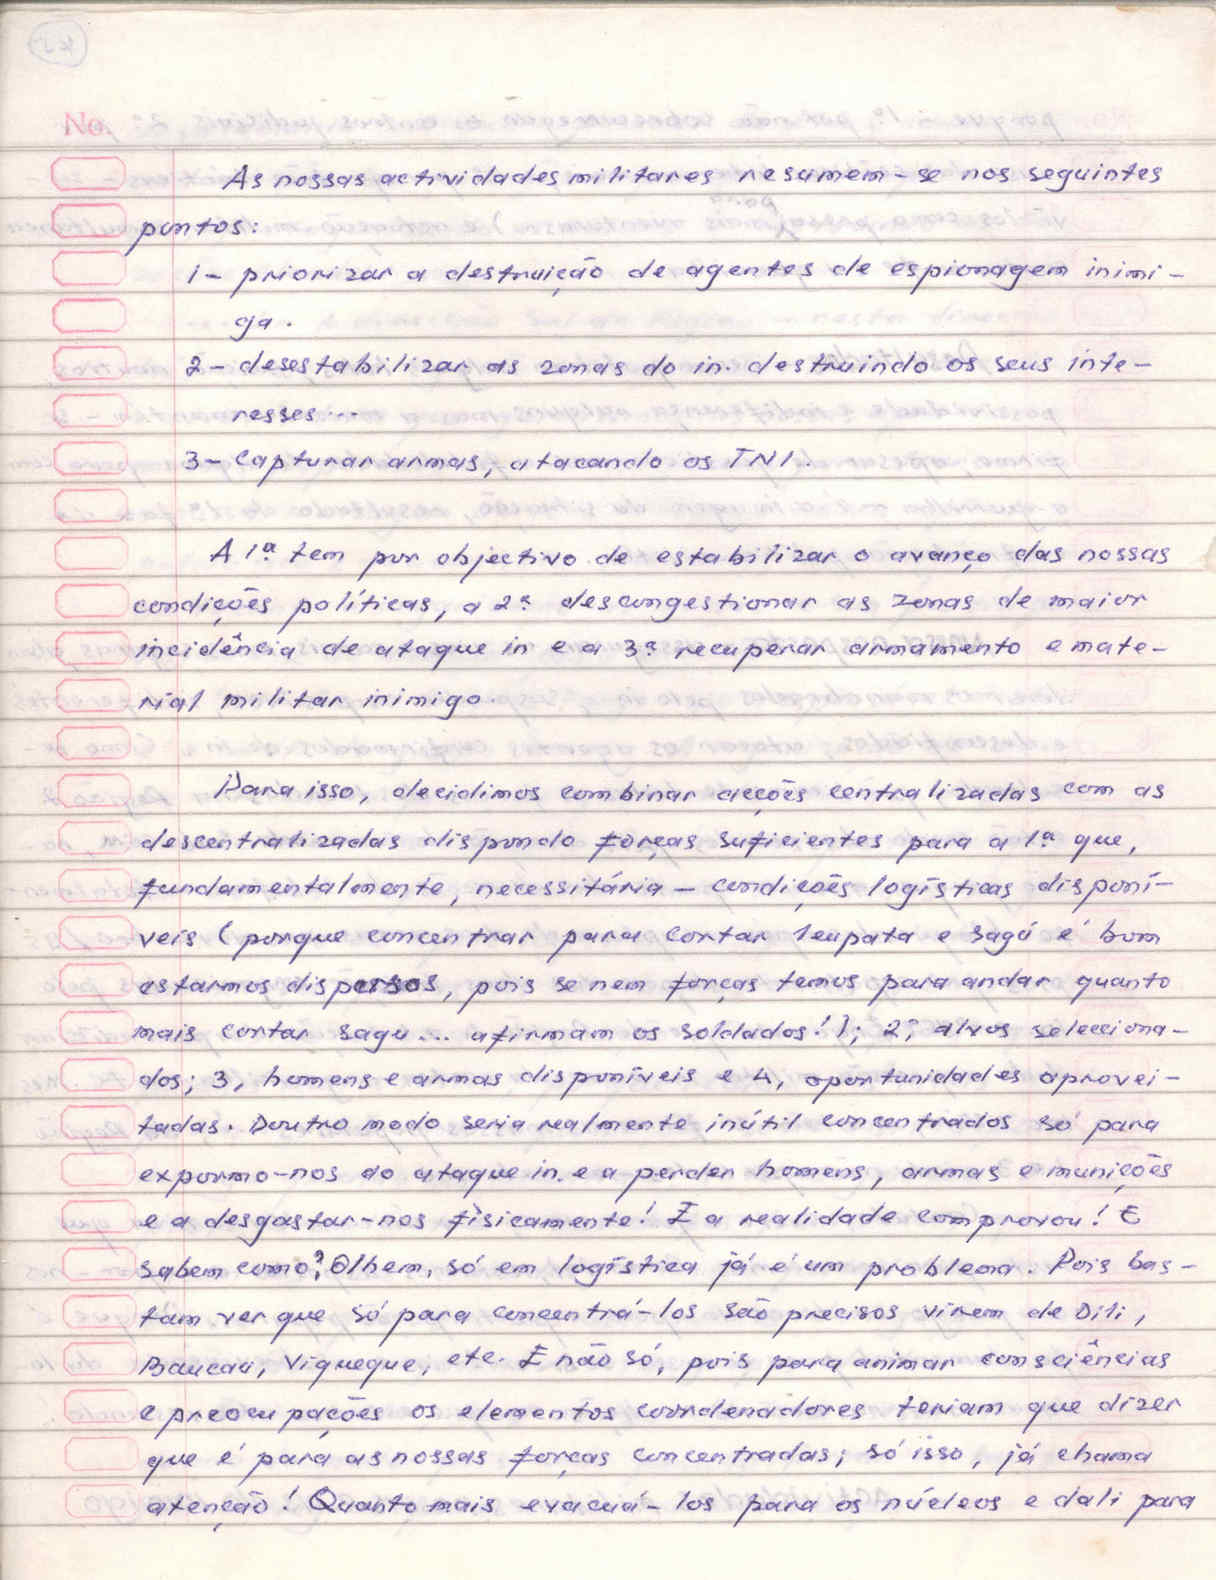 No.
As nossas actividades militares resumem-se nos seguintes
pontos:
1- priorizar a destruição de agentes de espionagem inimi-
ga.
2- desestabilizar as zonas do in. destruindo os seus inte-
resses...
3- Capturar armas, atacando os TNI.
A 1ª tem por objectivo de estabilizar o avanço das nossas
condições políticas, a 2ª descongestionar as zonas de maior
incidência de ataque in e a 3ª recuperar armamento e mate-
rial militar inimigo.
Para isso, decidimos combinar acções centralizadas com as
descentralizadas dispondo forças suficientes para a 1ª que,
fundamentalmente, necessitária - condições logísticas disponí-
veis (porque concentrar para cortar leupata e sagú é bom
estarmos dispersos, pois se nem forças temos para andar quanto
mais cortar sagu... afirmam os soldados!); 2, alvos selecciona-
dos; 3, homens e armas disponíveis e 4, oportunidades aprovei-
tadas. Doutro modo seria realmente inútil concentrados só para
expormo-nos ao ataque in. e a perder homens, armas e munições
e a desgastar-nos fìsicamente! E a realidade comprovou! E
sabem como? Olhem, só em logística já é um problema. Pois bas-
tam ver que só para concentrá-los são precisos virem de Dili,
Baucau, Viqueque, etc. E não só, pois para animar consciências
e preocupações os elementos coordenadores teriam que dizer
que é para as nossas forças concentradas; só isso, já chama
atenção! Quanto mais evacuá-los para os núcleos e dali para